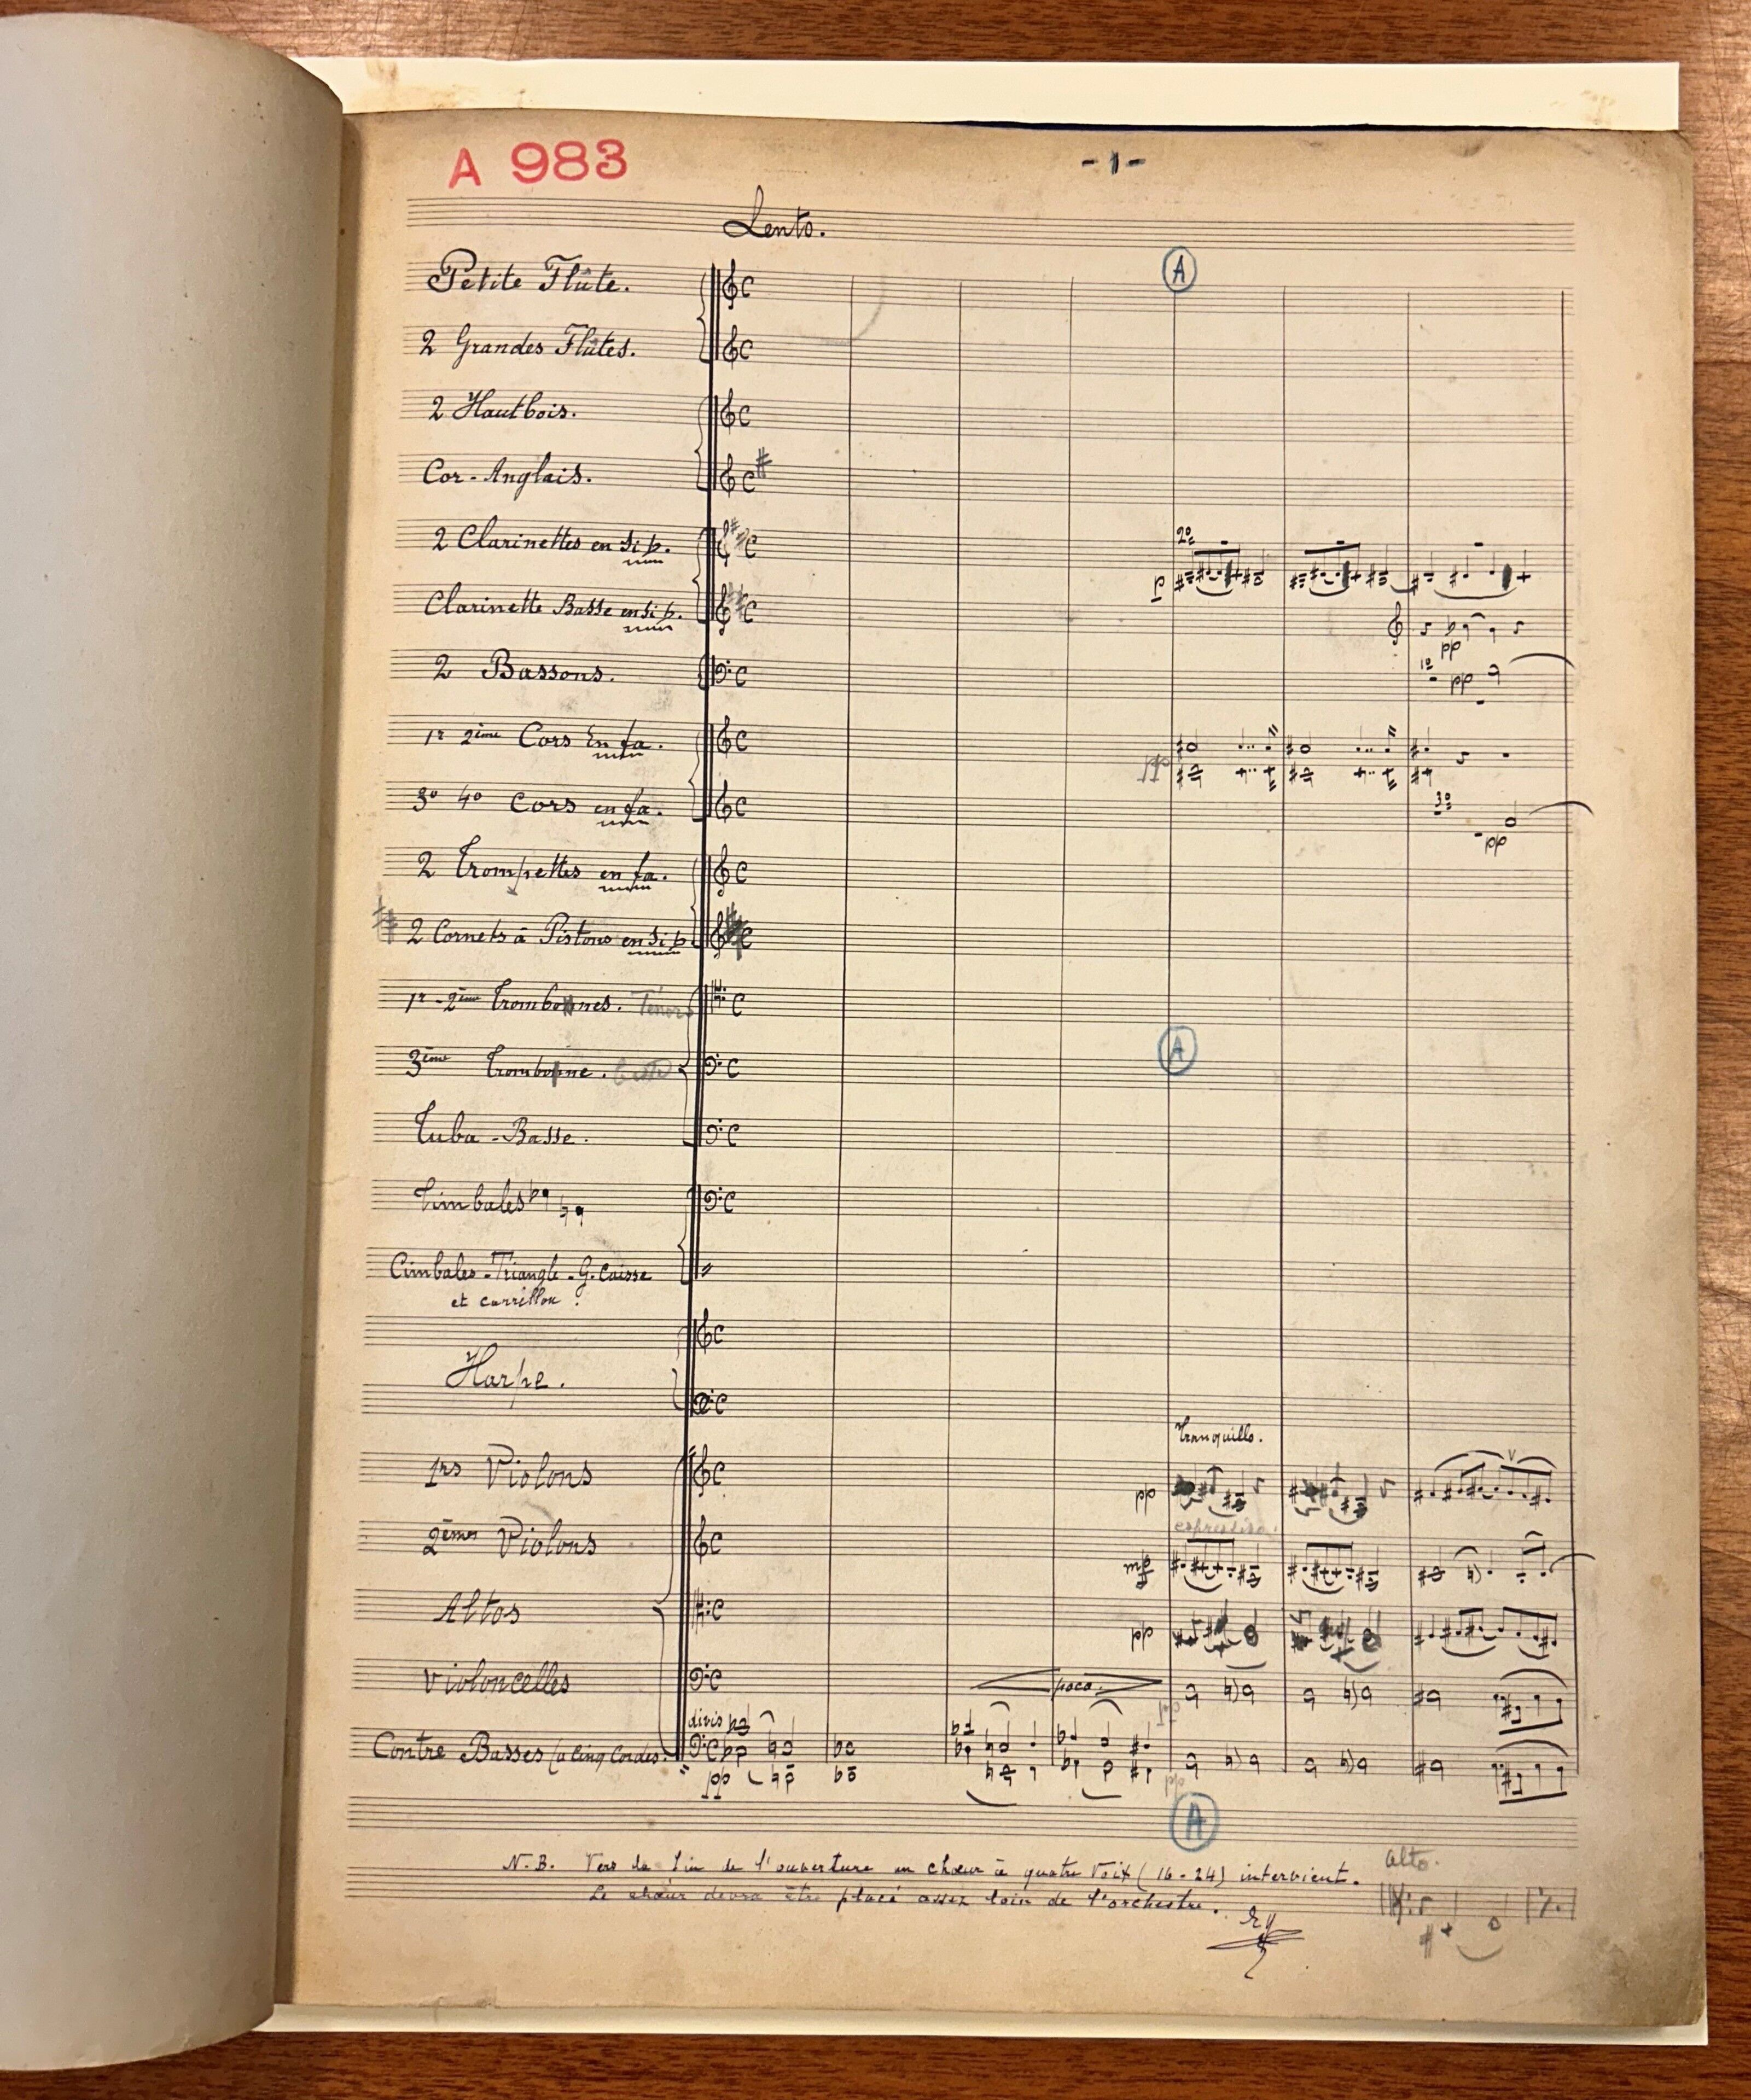 A 983
- 1 -
Lento.
A
Petite Flûte.
2 Grandes Flûtes.
2 Hautbois.
Cor-Anglais.
2 Clarinettes en si b.
2º
p
Clarinette Basse en si b.
pp
2 Bassons.
1º
pp
1r 2ème Cors En fa.
pp
3º 4º Cors en fa.
3º
pp
2 Trompettes en fa.
2 Cornets à Pistons en si b
1r - 2ème Trombones. Ténors
A
3ème Trombone.
Tuba-Basse.
Timbales
Cimbales-Triangle-G. Caisse
et carrillon.
Harpe.
Tranquillo.
1rs Violons
pp
espressivo
2èmes Violons
mf
Altos
pp
Violoncelles
poco.
divis
Contre Basses (a Cinq Cordes.
pp
pp
A
N.B. Vers la fin de l'ouverture un chœur à quatre Voix (16-24) intervient.
Le chœur devra être placé assez loin de l'orchestre.
Alto.